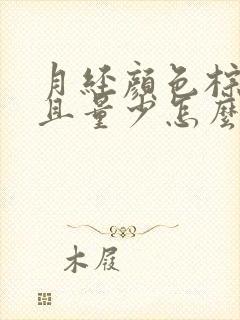 月経顏色棕
且量少怎麼
木屐